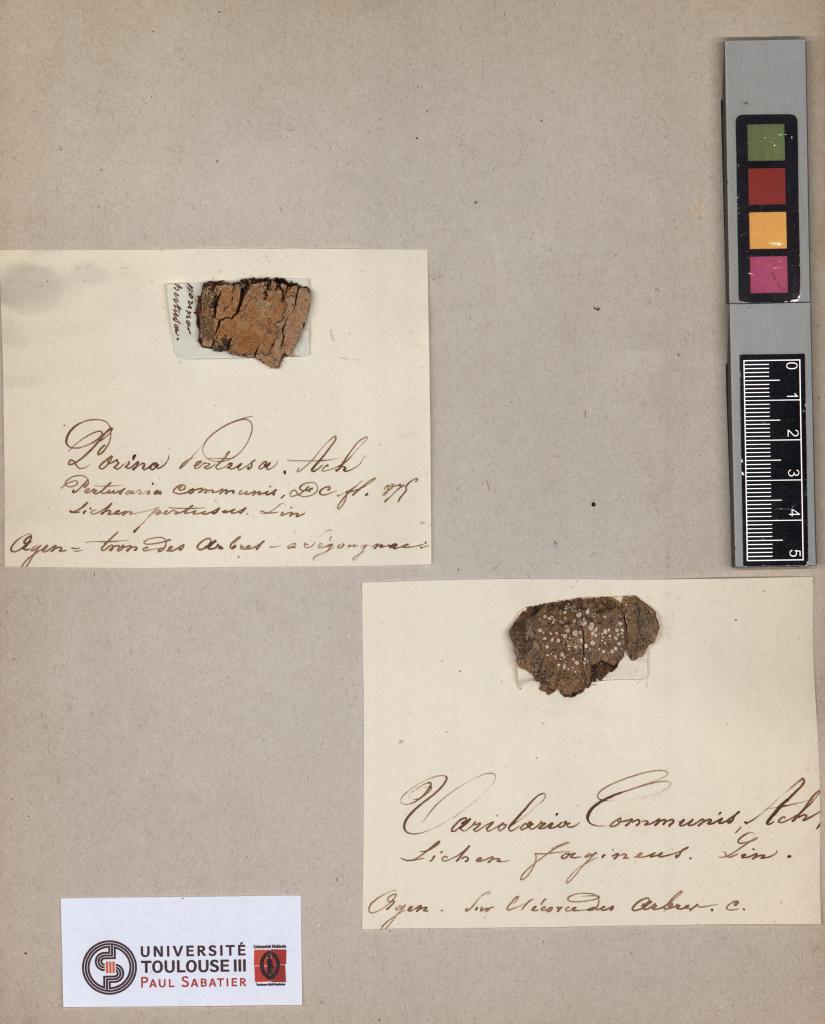 porina
pertusa.
Porina Pertusa. Ach
Pertusaria communis, DC fl.
Lichen pertusus. Lin
Agen = tronc des arbres - a Ségougnac
Variolaria Communis, Ach,
Lichen fagineus. Lin.
Agen. Sur l'écorce des arbres. c.
0
1
2
3
4
5
UNIVERSITÉ
TOULOUSE III
PAUL SABATIER
Université Fédérale
Toulouse Midi-Pyrénées